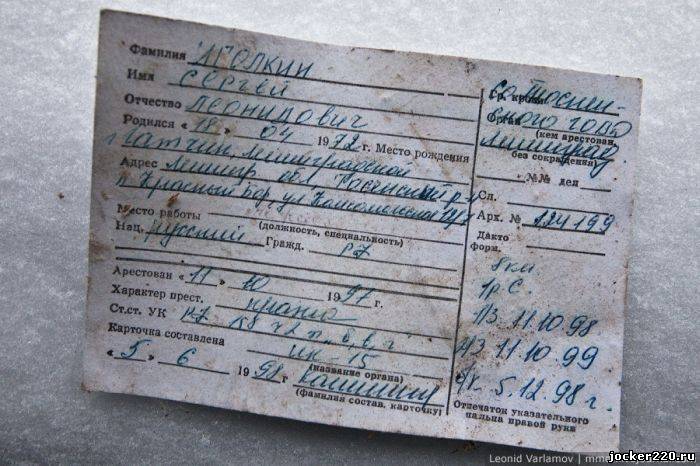 Фамилия Иголкин
Имя Сергей
Отчество Леонидович
Родился «18» 04 1972 г. Место рождения
г Гатчин, Ленинградской
Адрес Ленингр обл Тосненский р-н
п. Красный бор, ул Комсомольская
Место работы
(должность, специальность)
Нац. русский Гражд. РФ
Арестован «11» 10 1997 г.
Характер прест. кража
Ст.ст. УК РФ 158 ч 2 п. б, в, г
Карточка составлена ИК-15
(название органа)
«5» 6 1998 г
(фамилия состав. карточку)
Гр. крови
Орган
(кем арестован,
без сокращения)
№№ дел
Сл.
Арх. № 124199
Дакто
форм.
11.10.98
11.10.99
5.12.98 г.
Отпечаток указательного
пальца правой руки
Leonid Varlamov | mme
jocker220.ru